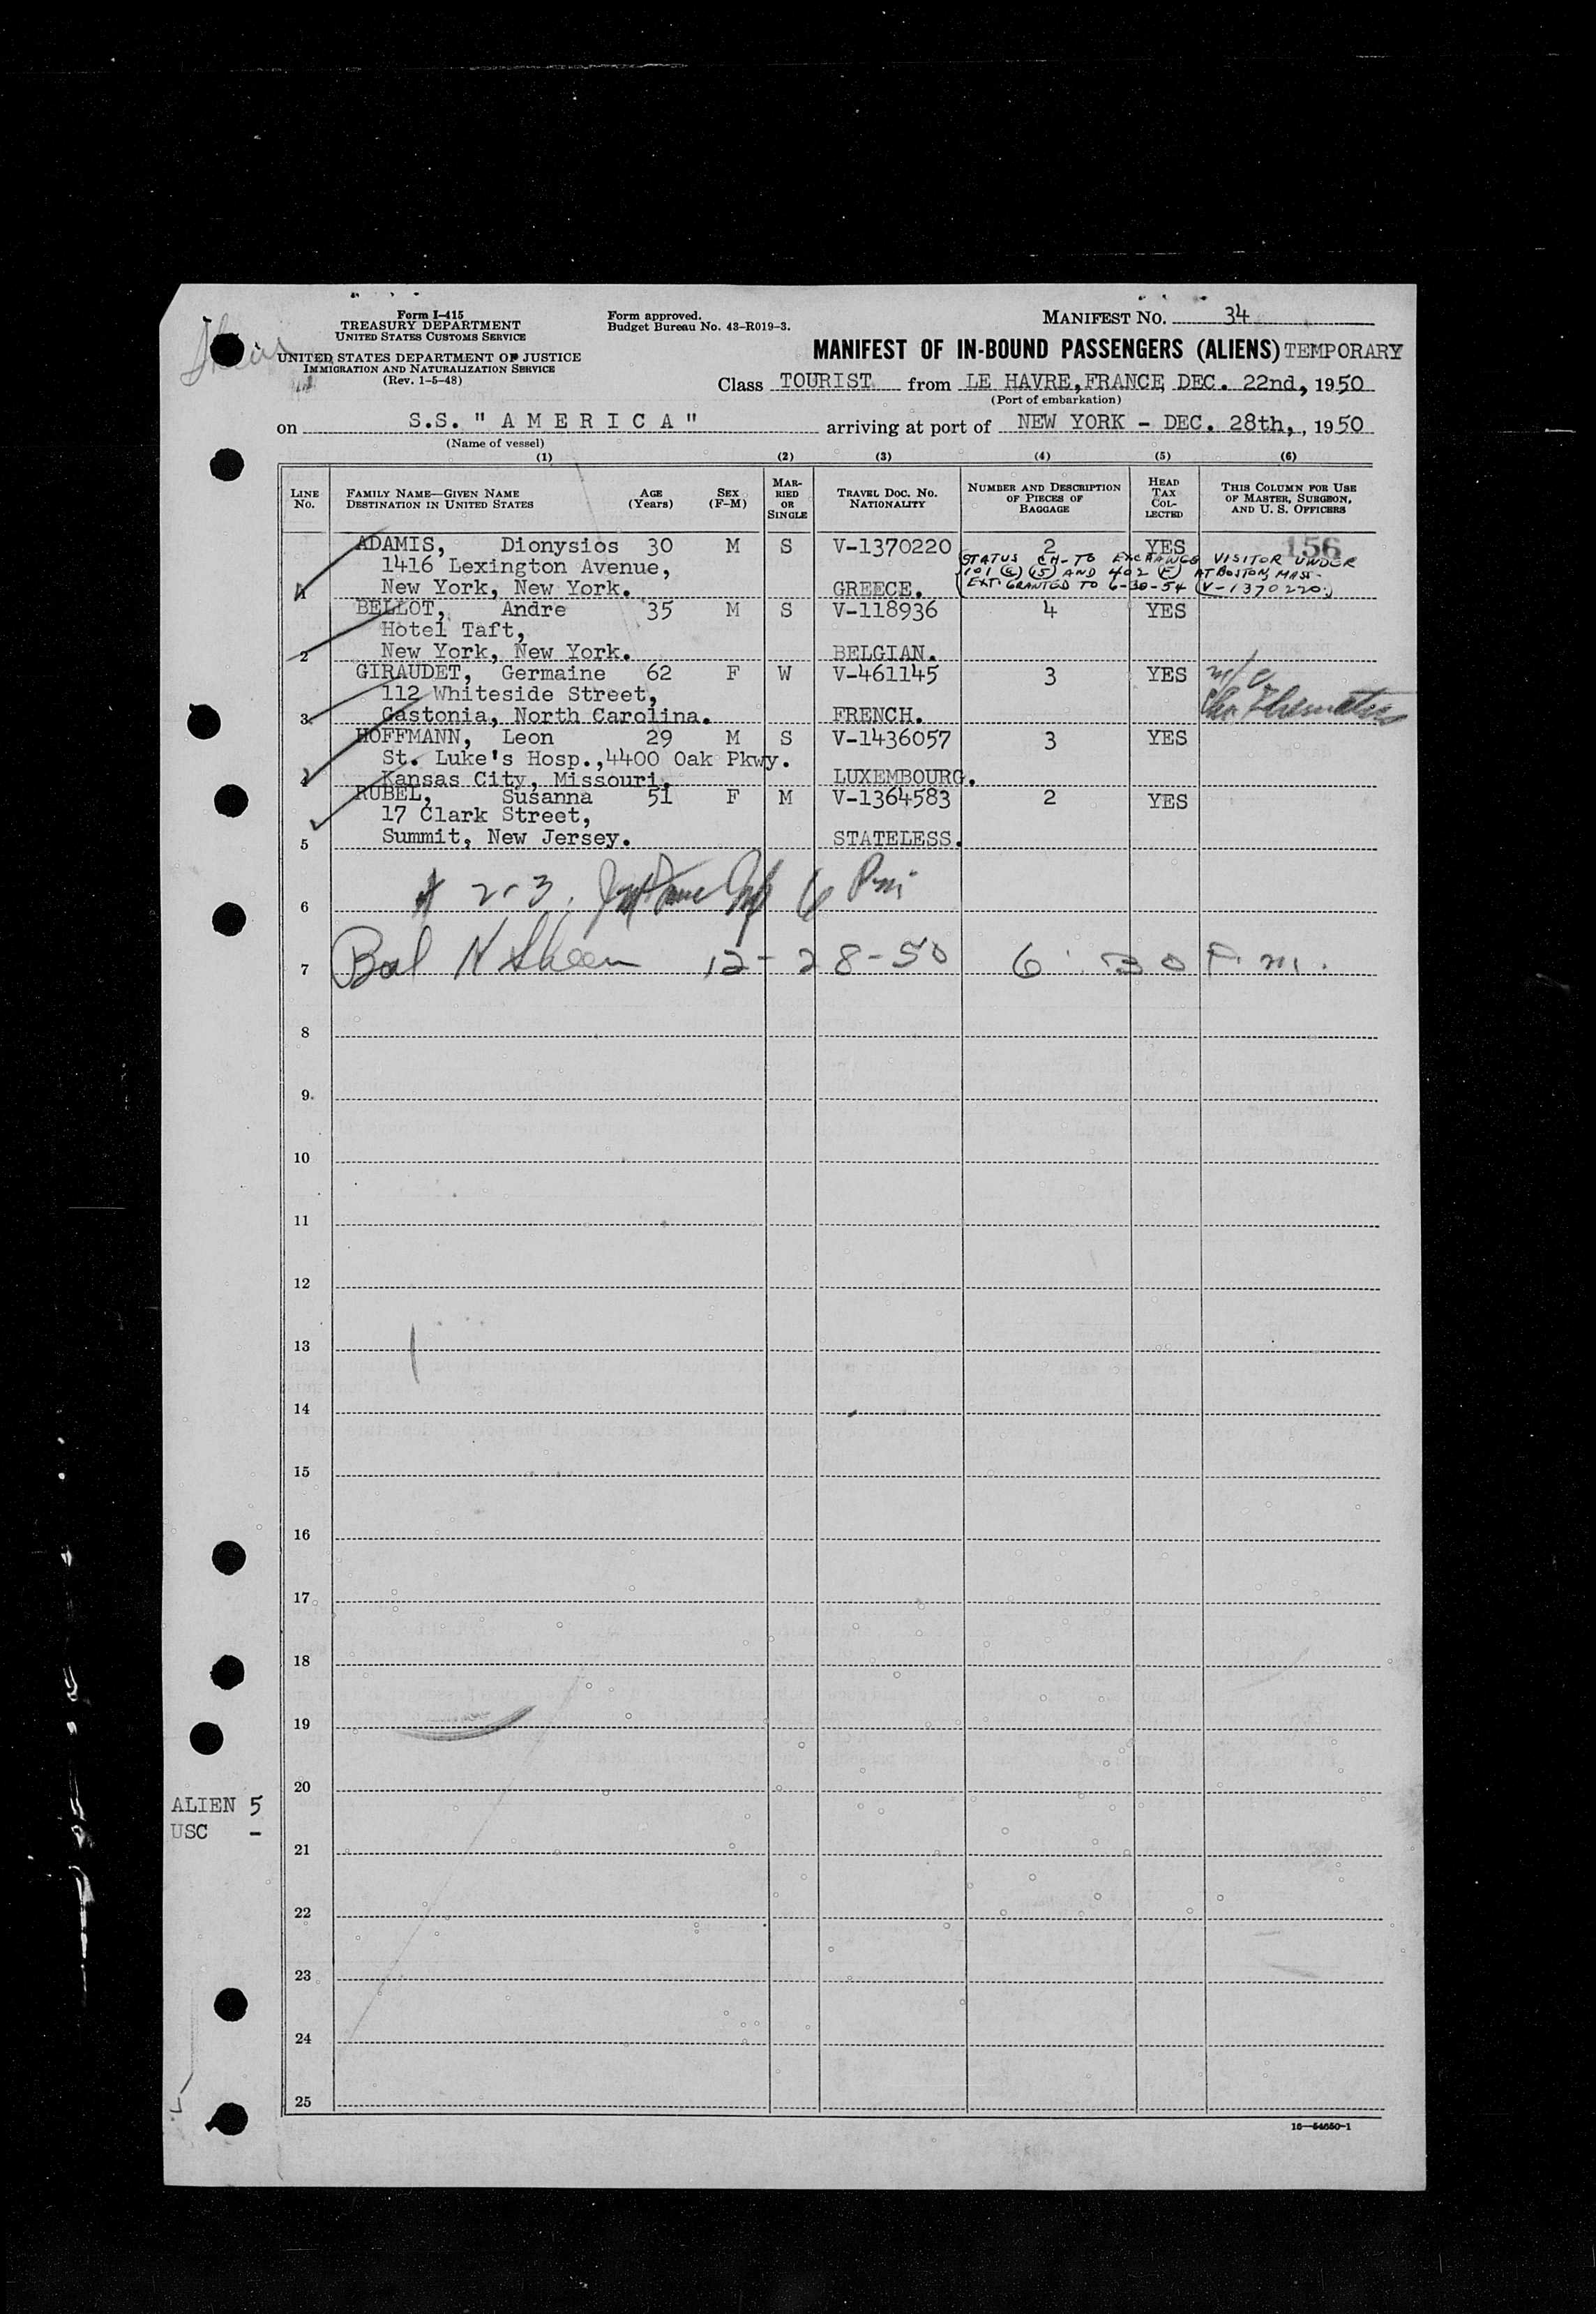 Form I-415
TREASURY DEPARTMENT
UNITED STATES CUSTOMS SERVICE
UNITED STATES DEPARTMENT OF JUSTICE
IMMIGRATION AND NATURALIZATION SERVICE
(Rev. 1-5-48)
Form approved.
Budget Bureau No. 43-R019-3.
MANIFEST NO. 34
MANIFEST OF IN-BOUND PASSENGERS (ALIENS) TEMPORARY
Class TOURIST from LE HAVRE, FRANCE, DEC. 22nd, 1950
(Port of embarkation)
on S.S. "AMERICA" arriving at port of NEW YORK - DEC. 28th, , 1950
(Name of vessel)
(1) (2) (3) (4) (5) (6)
LINE NO. FAMILY NAME—GIVEN NAME DESTINATION IN UNITED STATES AGE (Years) SEX (F-M) MARRIED OR SINGLE TRAVEL DOC. NO. NATIONALITY NUMBER AND DESCRIPTION OF PIECES OF BAGGAGE HEAD TAX COLLECTED THIS COLUMN FOR USE OF MASTER, SURGEON, AND U. S. OFFICERS
ADAMIS, Dionysios 30 M S V-1370220 2 YES 156
STATUS CH-TO EXCHANGE VISITOR UNDER
1416 Lexington Avenue,
101 (a) (15) AND 402 (F) AT BOSTON, MASS.
EXT. GRANTED TO 6-30-54 (V-1370220)
1 New York, New York. GREECE.
BELLOT, Andre 35 M S V-118936 4 YES
Hotel Taft,
2 New York, New York. BELGIAN.
GIRAUDET, Germaine 62 F W V-461145 3 YES
112 Whiteside Street,
3 Gastonia, North Carolina. FRENCH.
HOFFMANN, Leon 29 M S V-1436057 3 YES
St. Luke's Hosp.,4400 Oak Pkwy.
4 Kansas City, Missouri. LUXEMBOURG.
RUBEL, Susanna 51 F M V-1364583 2 YES
17 Clark Street,
5 Summit, New Jersey. STATELESS.
6 2-3. 6 Pm
7 12-28-50 6:30 P.m.
8
9
10
11
12
13
14
15
16
17
18
19
20
ALIEN 5
USC -
21
22
23
24
25
16—54650-1